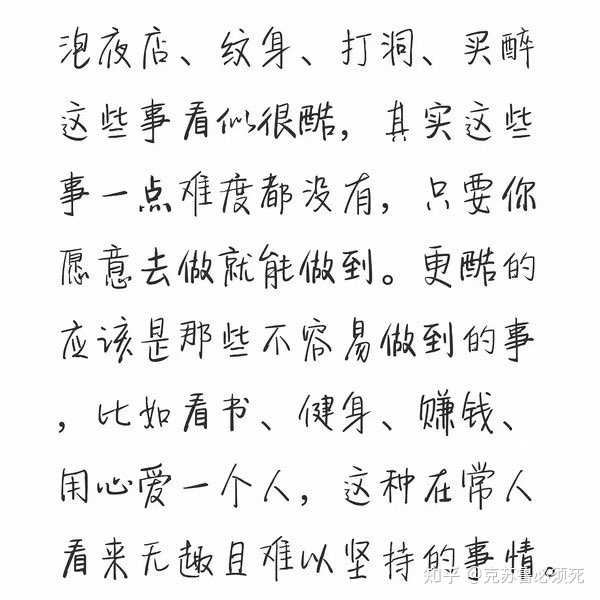 泡夜店、纹身、打洞、买醉
这些事看似很酷，其实这些
事一点难度都没有，只要你
愿意去做就能做到。更酷的
应该是那些不容易做到的事
，比如看书、健身、赚钱、
用心爱一个人，这种在常人
看来无趣且难以坚持的事情。
知乎 @克苏鲁必须死